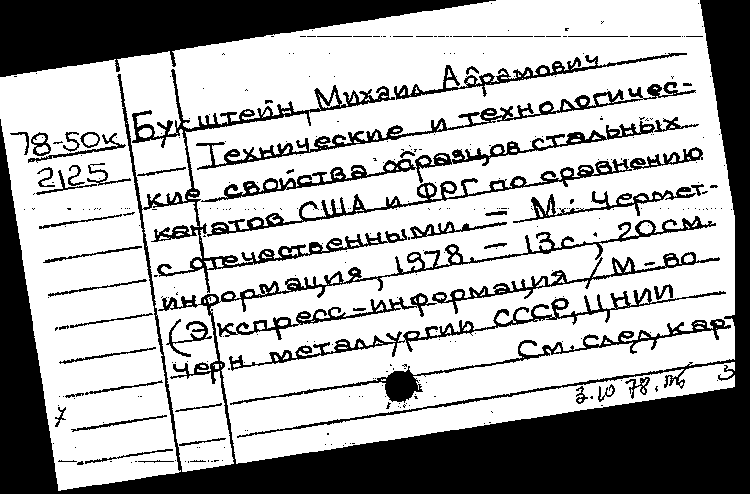 Букштейн, Михаил Абрамович
78-50к
2125
Технические и технологичес-
кие свойства образцов стальных
канатов США и ФРГ по сравнению
с отечественными. — М.: Чермет-
информация, 1978. — 13с.; 20см.
(Экспресс-информация / М-во
черн. металлургии СССР, ЦНИИ
См. след. карт
7
3.10 78.